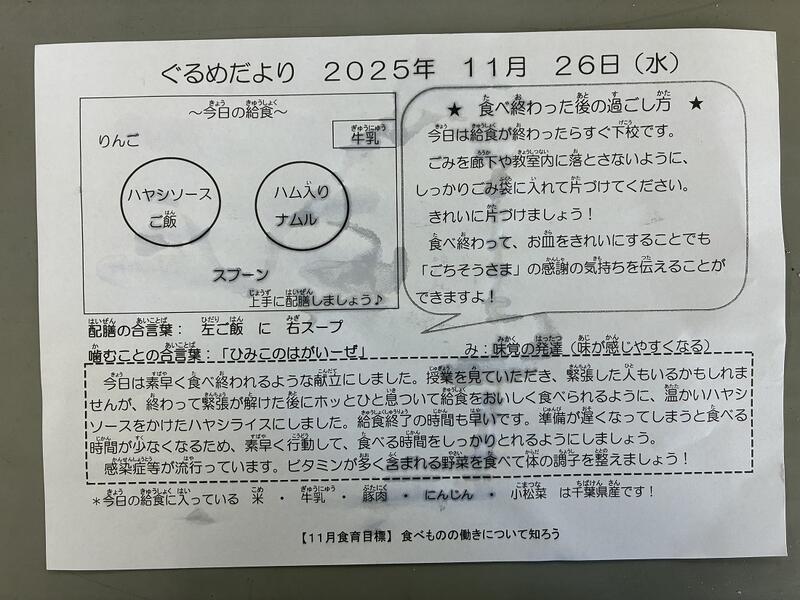 ぐるめだより　２０２５年　１１月　２６日（水）
～今日の給食～
りんご
牛乳
ハヤシソース
ご飯
ハム入り
ナムル
スプーン
上手に配膳しましょう♪
★ 食べ終わった後の過ごし方 ★
今日は給食が終わったらすぐ下校です。
ごみを廊下や教室内に落とさないように、
しっかりごみ袋に入れて片づけてください。
きれいに片づけましょう！
食べ終わって、お皿をきれいにすることでも
「ごちそうさま」の感謝の気持ちを伝えることが
できますよ！
配膳の合言葉： 左ご飯 に 右スープ
噛むことの合言葉：「ひみこのはがいーぜ」　み：味覚の発達（味が感じやすくなる）
今日は素早く食べ終われるような献立にしました。授業を見ていただき、緊張した人もいるかもしれ
ませんが、終わって緊張が解けた後にホッとひと息ついて給食をおいしく食べられるように、温かいハヤシ
ソースをかけたハヤシライスにしました。給食終了の時間も早いです。準備が遅くなってしまうと食べる
時間が少なくなるため、素早く行動して、食べる時間をしっかりとれるようにしましょう。
感染症等が流行っています。ビタミンが多く含まれる野菜を食べて体の調子を整えましょう！
＊今日の給食に入っている　米　・　牛乳　・　豚肉　・　にんじん　・　小松菜　は千葉県産です！
【１１月食育目標】 食べものの働きについて知ろう